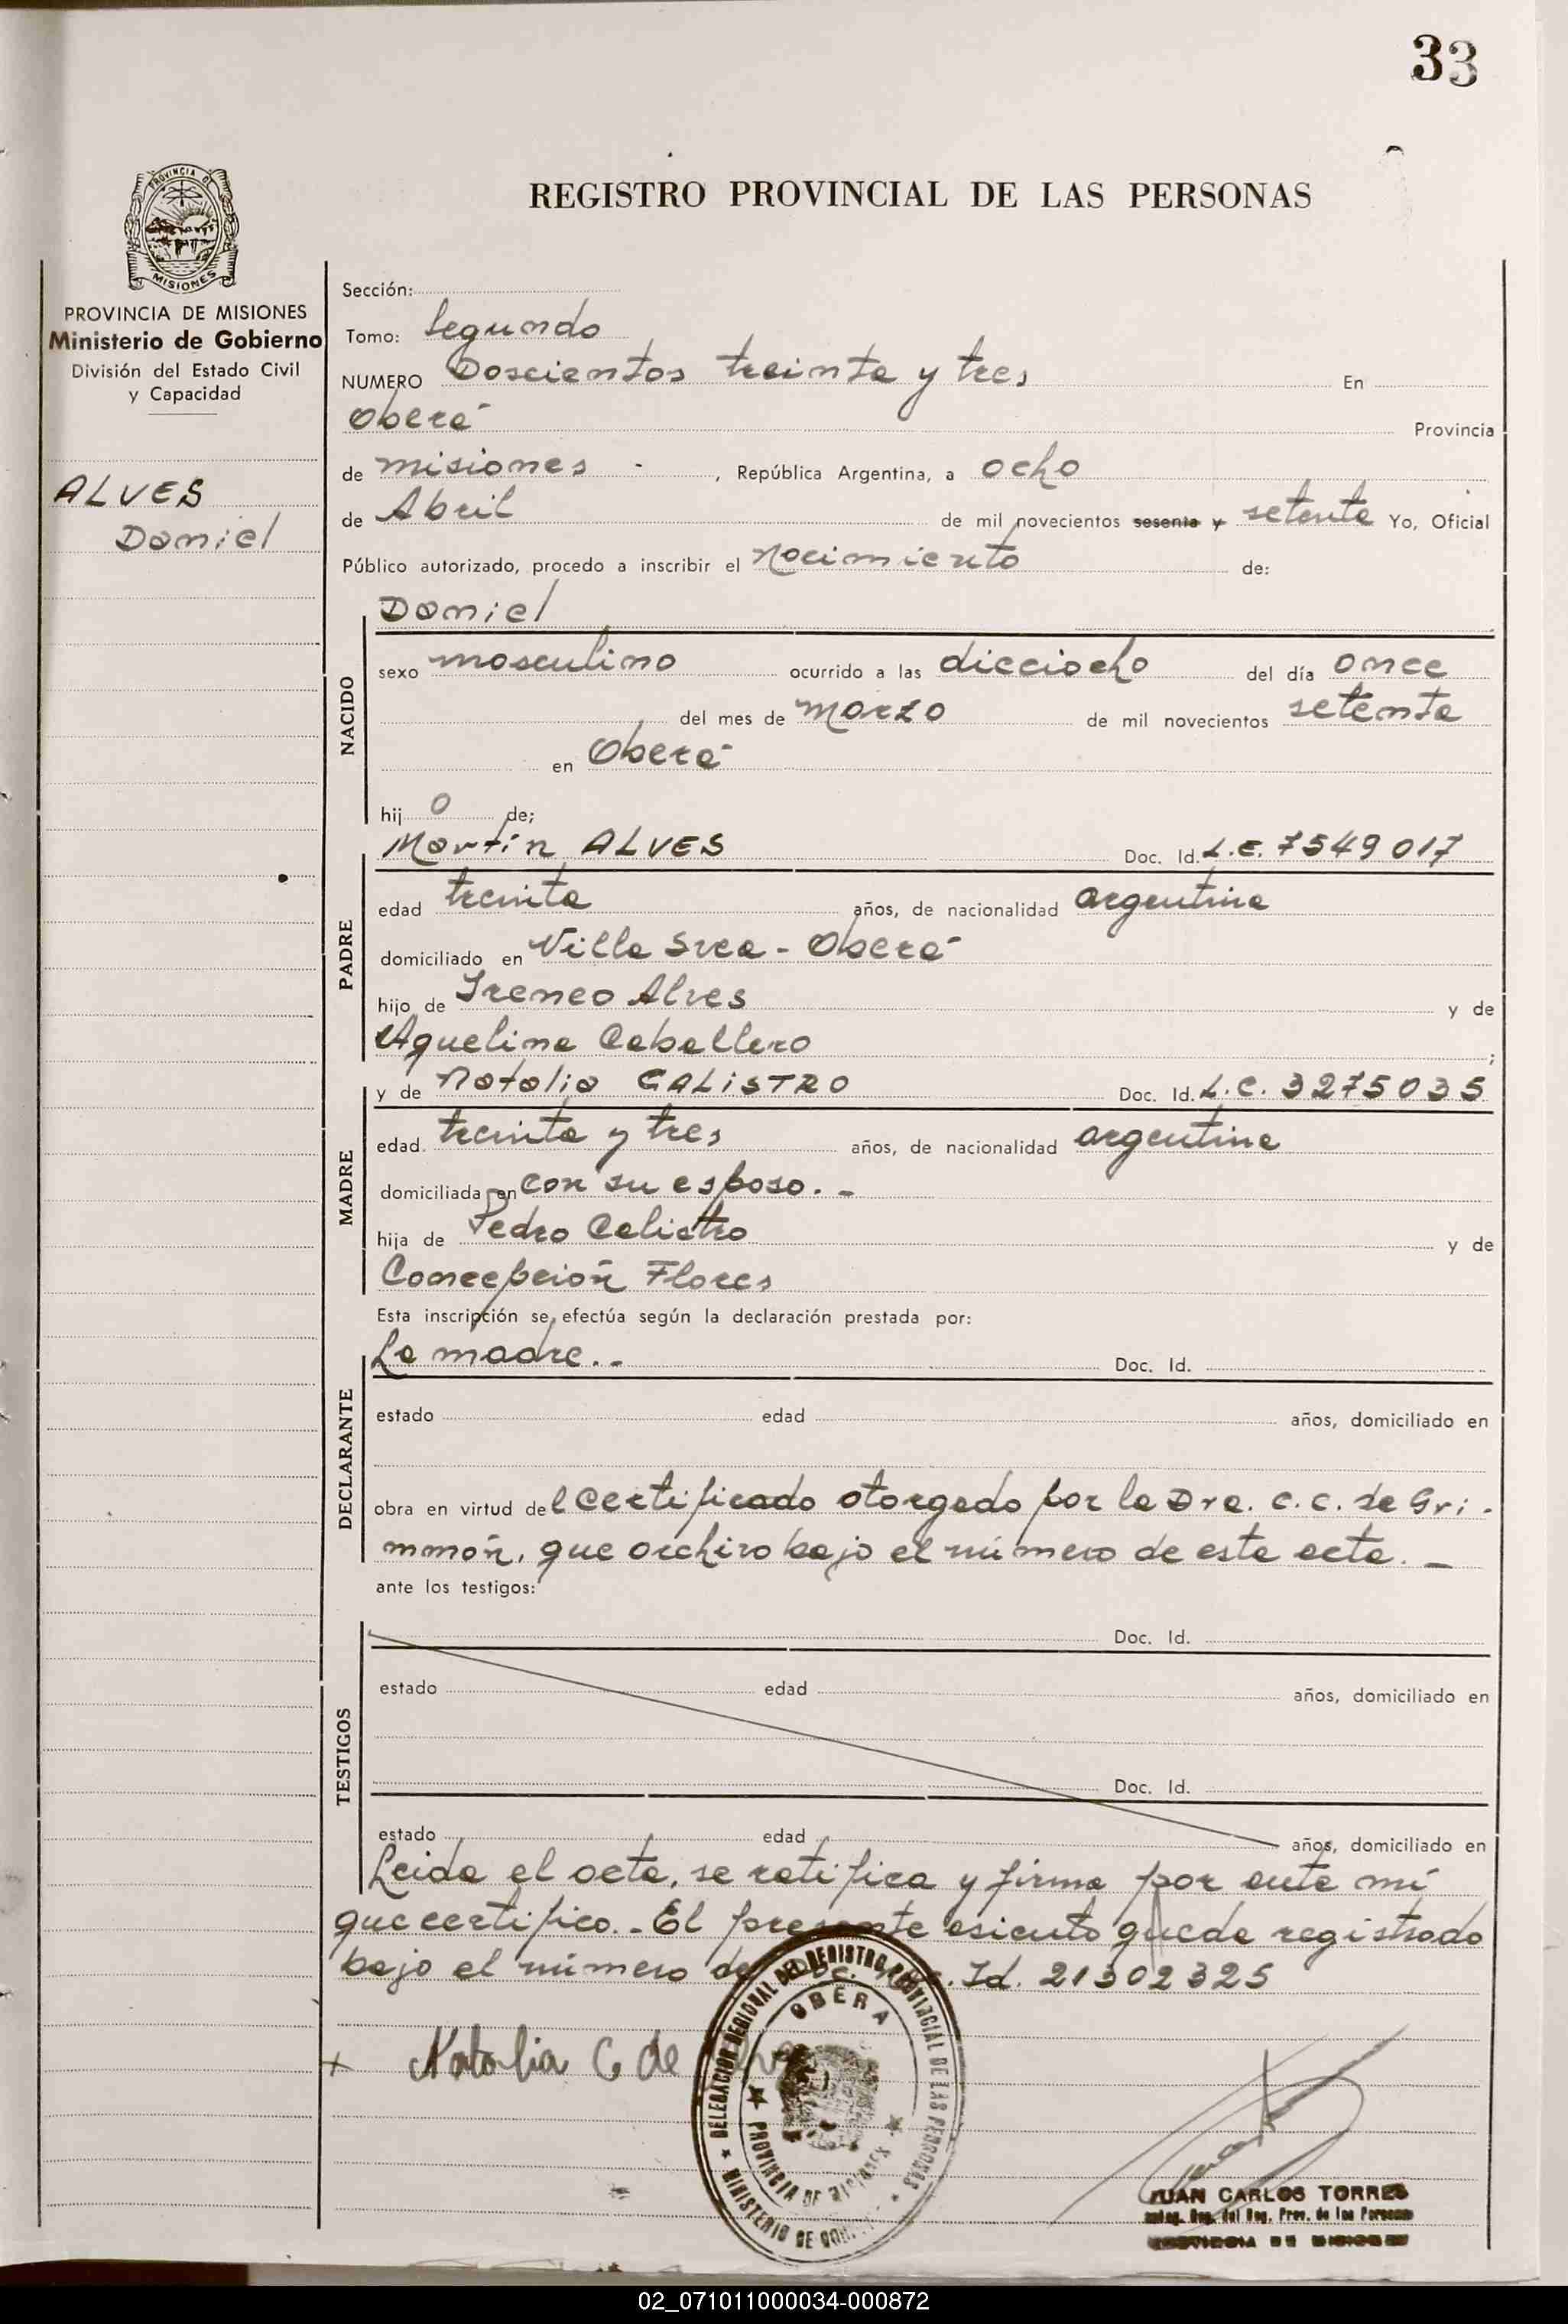 33
REGISTRO PROVINCIAL DE LAS PERSONAS
PROVINCIA DE MISIONES
Ministerio de Gobierno
División del Estado Civil
y Capacidad
ALVES
Daniel
Sección:
Tomo: Segundo
NUMERO Doscientos treinta y tres En
Oberá Provincia
de misiones - , República Argentina, a ocho
de Abril de mil novecientos sesenta y setenta Yo, Oficial
Público autorizado, procedo a inscribir el nacimiento de:
NACIDO
Daniel
sexo masculino ocurrido a las dieciocho del día once
del mes de marzo de mil novecientos setenta
en Oberá
hij o de;
PADRE
Martín ALVES Doc. Id. L.E. 7549017
edad treinta años, de nacionalidad argentina
domiciliado en Villa Svea - Oberá
hijo de Ireneo Alves y de
Aquelina Caballero ;
MADRE
y de Natalia CALISTRO Doc. Id. L.C. 3275035
edad treinta y tres años, de nacionalidad argentina
domiciliada en con su esposo. -
hija de Pedro Calistro y de
Concepción Flores
Esta inscripción se efectúa según la declaración prestada por:
DECLARANTE
La madre. - Doc. Id.
estado edad años, domiciliado en
obra en virtud del certificado otorgado por la Dra. C. C. de Gri-
mmón, que archivo bajo el número de esta acta. -
ante los testigos:
TESTIGOS
Doc. Id.
estado edad años, domiciliado en
Doc. Id.
estado edad años, domiciliado en
Leida el acta, se ratifica y firma por ante mí
que certifico. - El presente asiento queda registrado
bajo el número de Doc. Id. 21302325
+ Natalia C de
DELEGACION REGIONAL DEL REGISTRO PROVINCIAL DE LAS PERSONAS
OBERA
PROVINCIA DE MISIONES
MINISTERIO DE
JUAN CARLOS TORRES
Reg. del Reg. Prov. de las Personas
PROVINCIA DE MISIONES
02_071011000034-000872